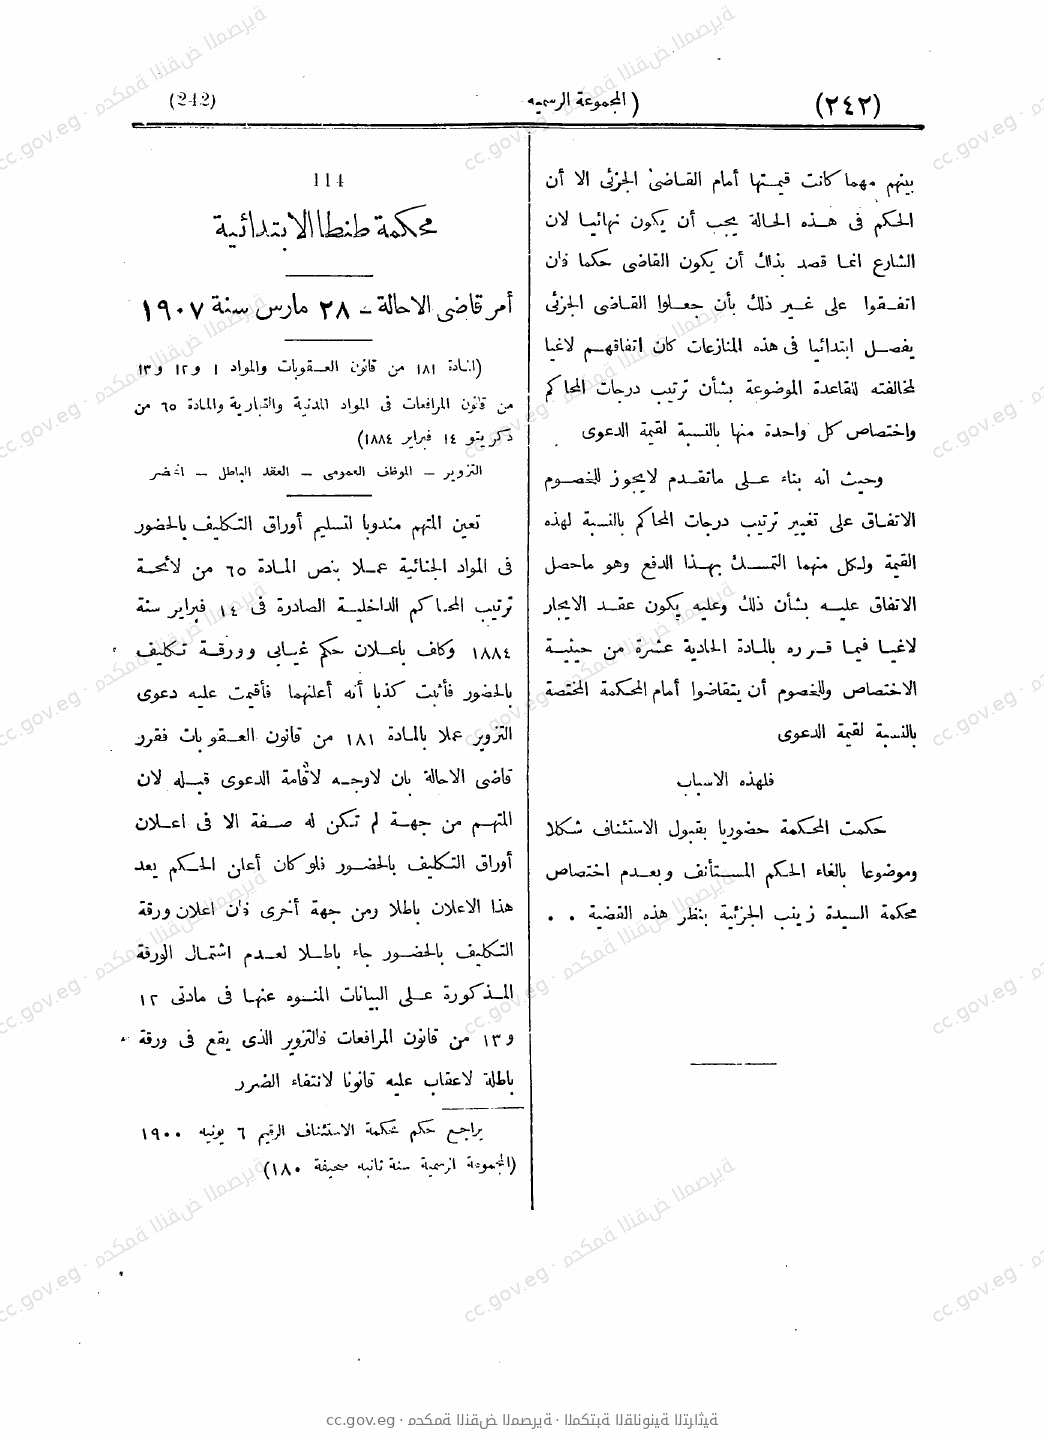 (٢٤٢)
( المجموعة الرسميه
(242)
بينهم مهما كانت قيمتها أمام القاضى الجزئى الا أن
الحكم فى هذه الحالة يجب أن يكون نهائيا لان
الشارع انما قصد بذلك أن يكون القاضى حكما فان
اتفقوا على غير ذلك بأن جعلوا القاضى الجزئى
يفصل ابتدائيا فى هذه المنازعات كان اتفاقهم لاغيا
لمخالفته للقاعدة الموضوعة بشأن ترتيب درجات المحاكم
واختصاص كل واحدة منها بالنسبة لقيمة الدعوى
وحيث انه بناء على ماتقدم لايجوز للخصوم
الاتفاق على تغيير ترتيب درجات المحاكم بالنسبة لهذه
القيمة ولكل منهما التمسك بهذا الدفع وهو ماحصل
الاتفاق عليه بشأن ذلك وعليه يكون عقد الايجار
لاغيا فيما قرره بالمادة الحادية عشرة من حيثية
الاختصاص وللخصوم أن يتقاضوا أمام المحكمة المختصة
بالنسبة لقيمة الدعوى
فلهذه الاسباب
حكمت المحكمة حضوريا بقبول الاستئناف شكلا
وموضوعا بالغاء الحكم المستأنف وبعدم اختصاص
محكمة السيدة زينب الجزئية بنظر هذه القضية . .
114
محكمة طنطا الابتدائية
أمر قاضى الاحالة - ٢٨ مارس سنة ١٩٠٧
(المادة ١٨١ من قانون العقوبات والمواد ١ و١٢ و١٣
من قانون المرافعات فى المواد المدنية والتجارية والمادة ٦٥ من
دكريتو ١٤ فبراير ١٨٨٤)
التزوير – الموظف العمومى – العقد الباطل – المحضر
تعين المتهم مندوبا لتسليم أوراق التكليف بالحضور
فى المواد الجنائية عملا بنص المادة ٦٥ من لائحة
ترتيب المحاكم الداخلية الصادرة فى ١٤ فبراير سنة
١٨٨٤ وكلف باعلان حكم غيابى وورقة تكليف
بالحضور فأثبت كذبا أنه أعلنهما فأقيمت عليه دعوى
التزوير عملا بالمادة ١٨١ من قانون العقوبات فقرر
قاضى الاحالة بان لاوجه لاقامة الدعوى قبله لان
المتهم من جهة لم تكن له صفة الا فى اعلان
أوراق التكليف بالحضور فلو كان أعلن الحكم يعد
هذا الاعلان باطلا ومن جهة أخرى فان اعلان ورقة
التكليف بالحضور جاء باطلا لعدم اشتمال الورقة
المذكورة على البيانات المنوه عنها فى مادتى ١٢
و١٣ من قانون المرافعات فالتزوير الذى يقع فى ورقة
باطلة لاعقاب عليه قانونا لانتفاء الضرر
يراجع حكم محكمة الاستئناف الرقيم ٦ يونيه ١٩٠٠
(المجموعة الرسمية سنة ثانيه صحيفة ١٨٠)
cc.gov.eg · محكمة النقض المصرية · المكتبة القانونية التراثية